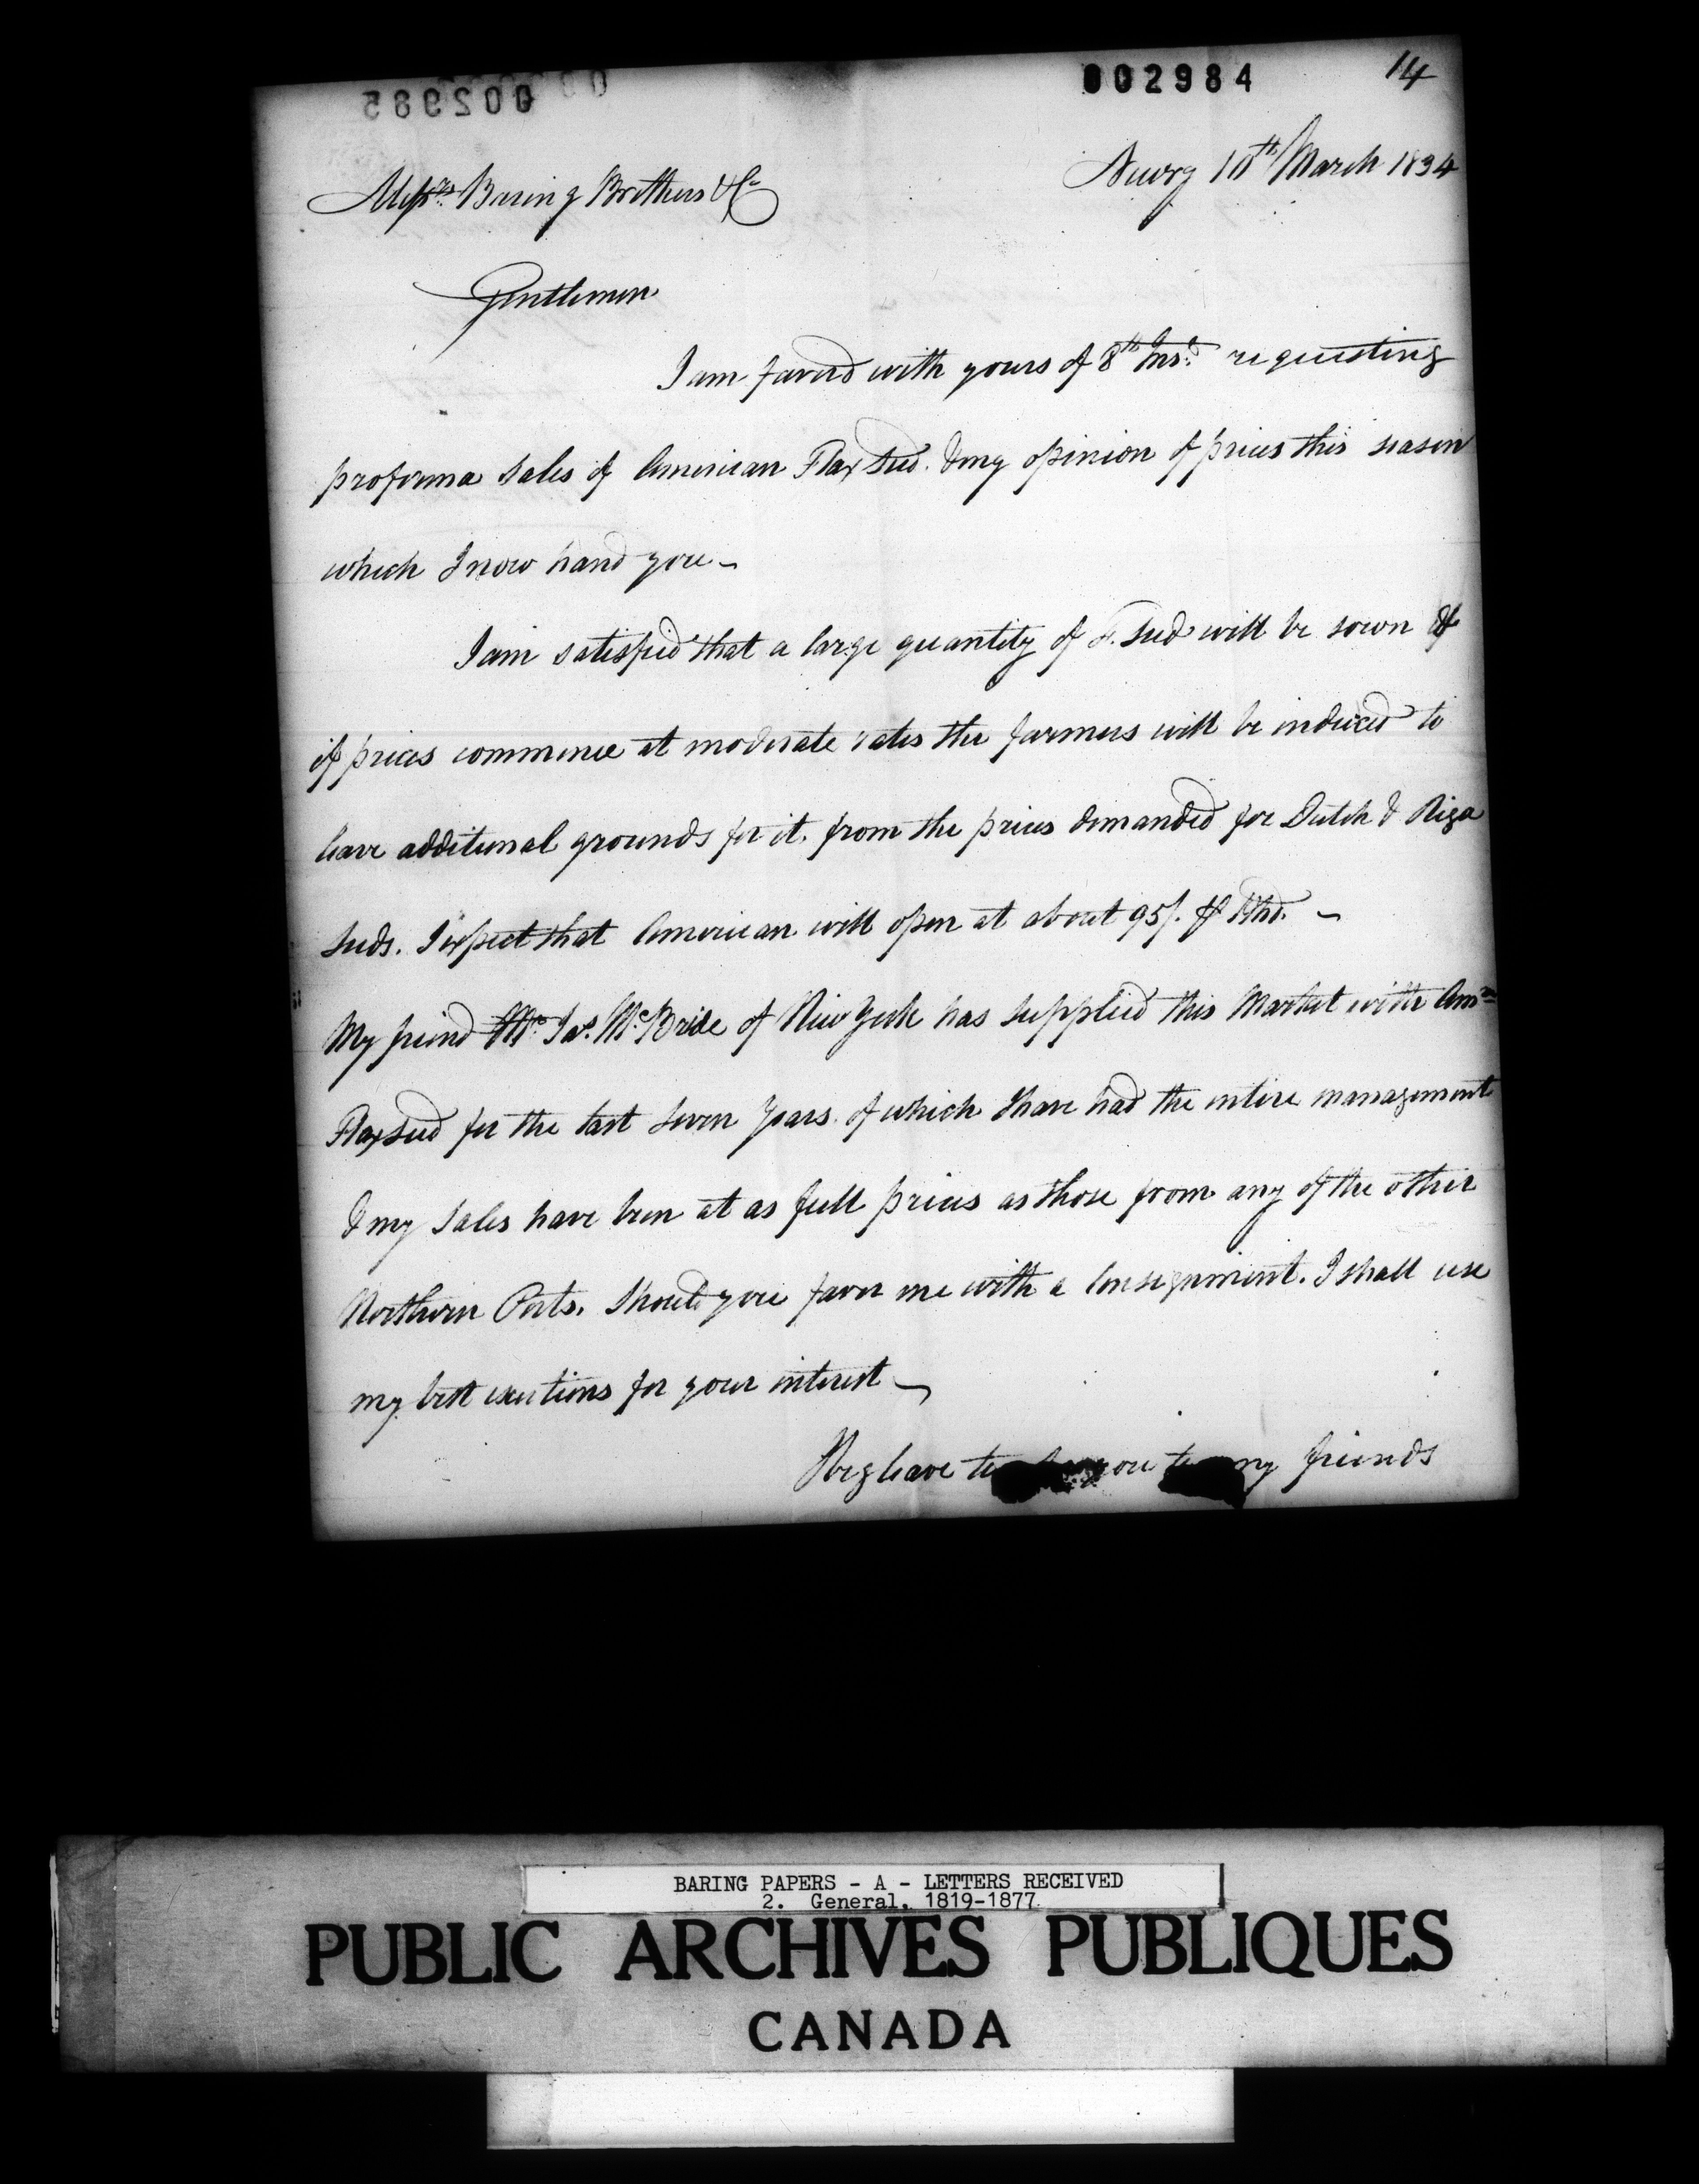 002985
002984
14
Newry 10th March 1834
Messrs Baring Brothers & Co
Gentlemen
I am favord with yours of 8th Inst. requesting
proforma sales of American Flaxseed. & my opinion of prices this season
which I now hand you -
I am satisfied that a large quantity of F. Seed will be sown &
if prices commence at moderate rates the farmers will be induced to
leave additional grounds for it. from the prices demanded for Dutch & Riga
Seeds. I expect that American will open at about 95/. ⅌ Hhd. -
My friend Mr. Jas. McBride of New York has supplied this Market with Amn
Flaxseed for the last seven Years. of which I have had the entire management
& my Sales have been at as full prices as those from any of the other
Northern Ports. Should you favor me with a Consignment. I shall use
my best exertions for your interest -
I beg leave to you my friends
BARING PAPERS - A - LETTERS RECEIVED
2. General, 1819-1877
PUBLIC ARCHIVES PUBLIQUES
CANADA